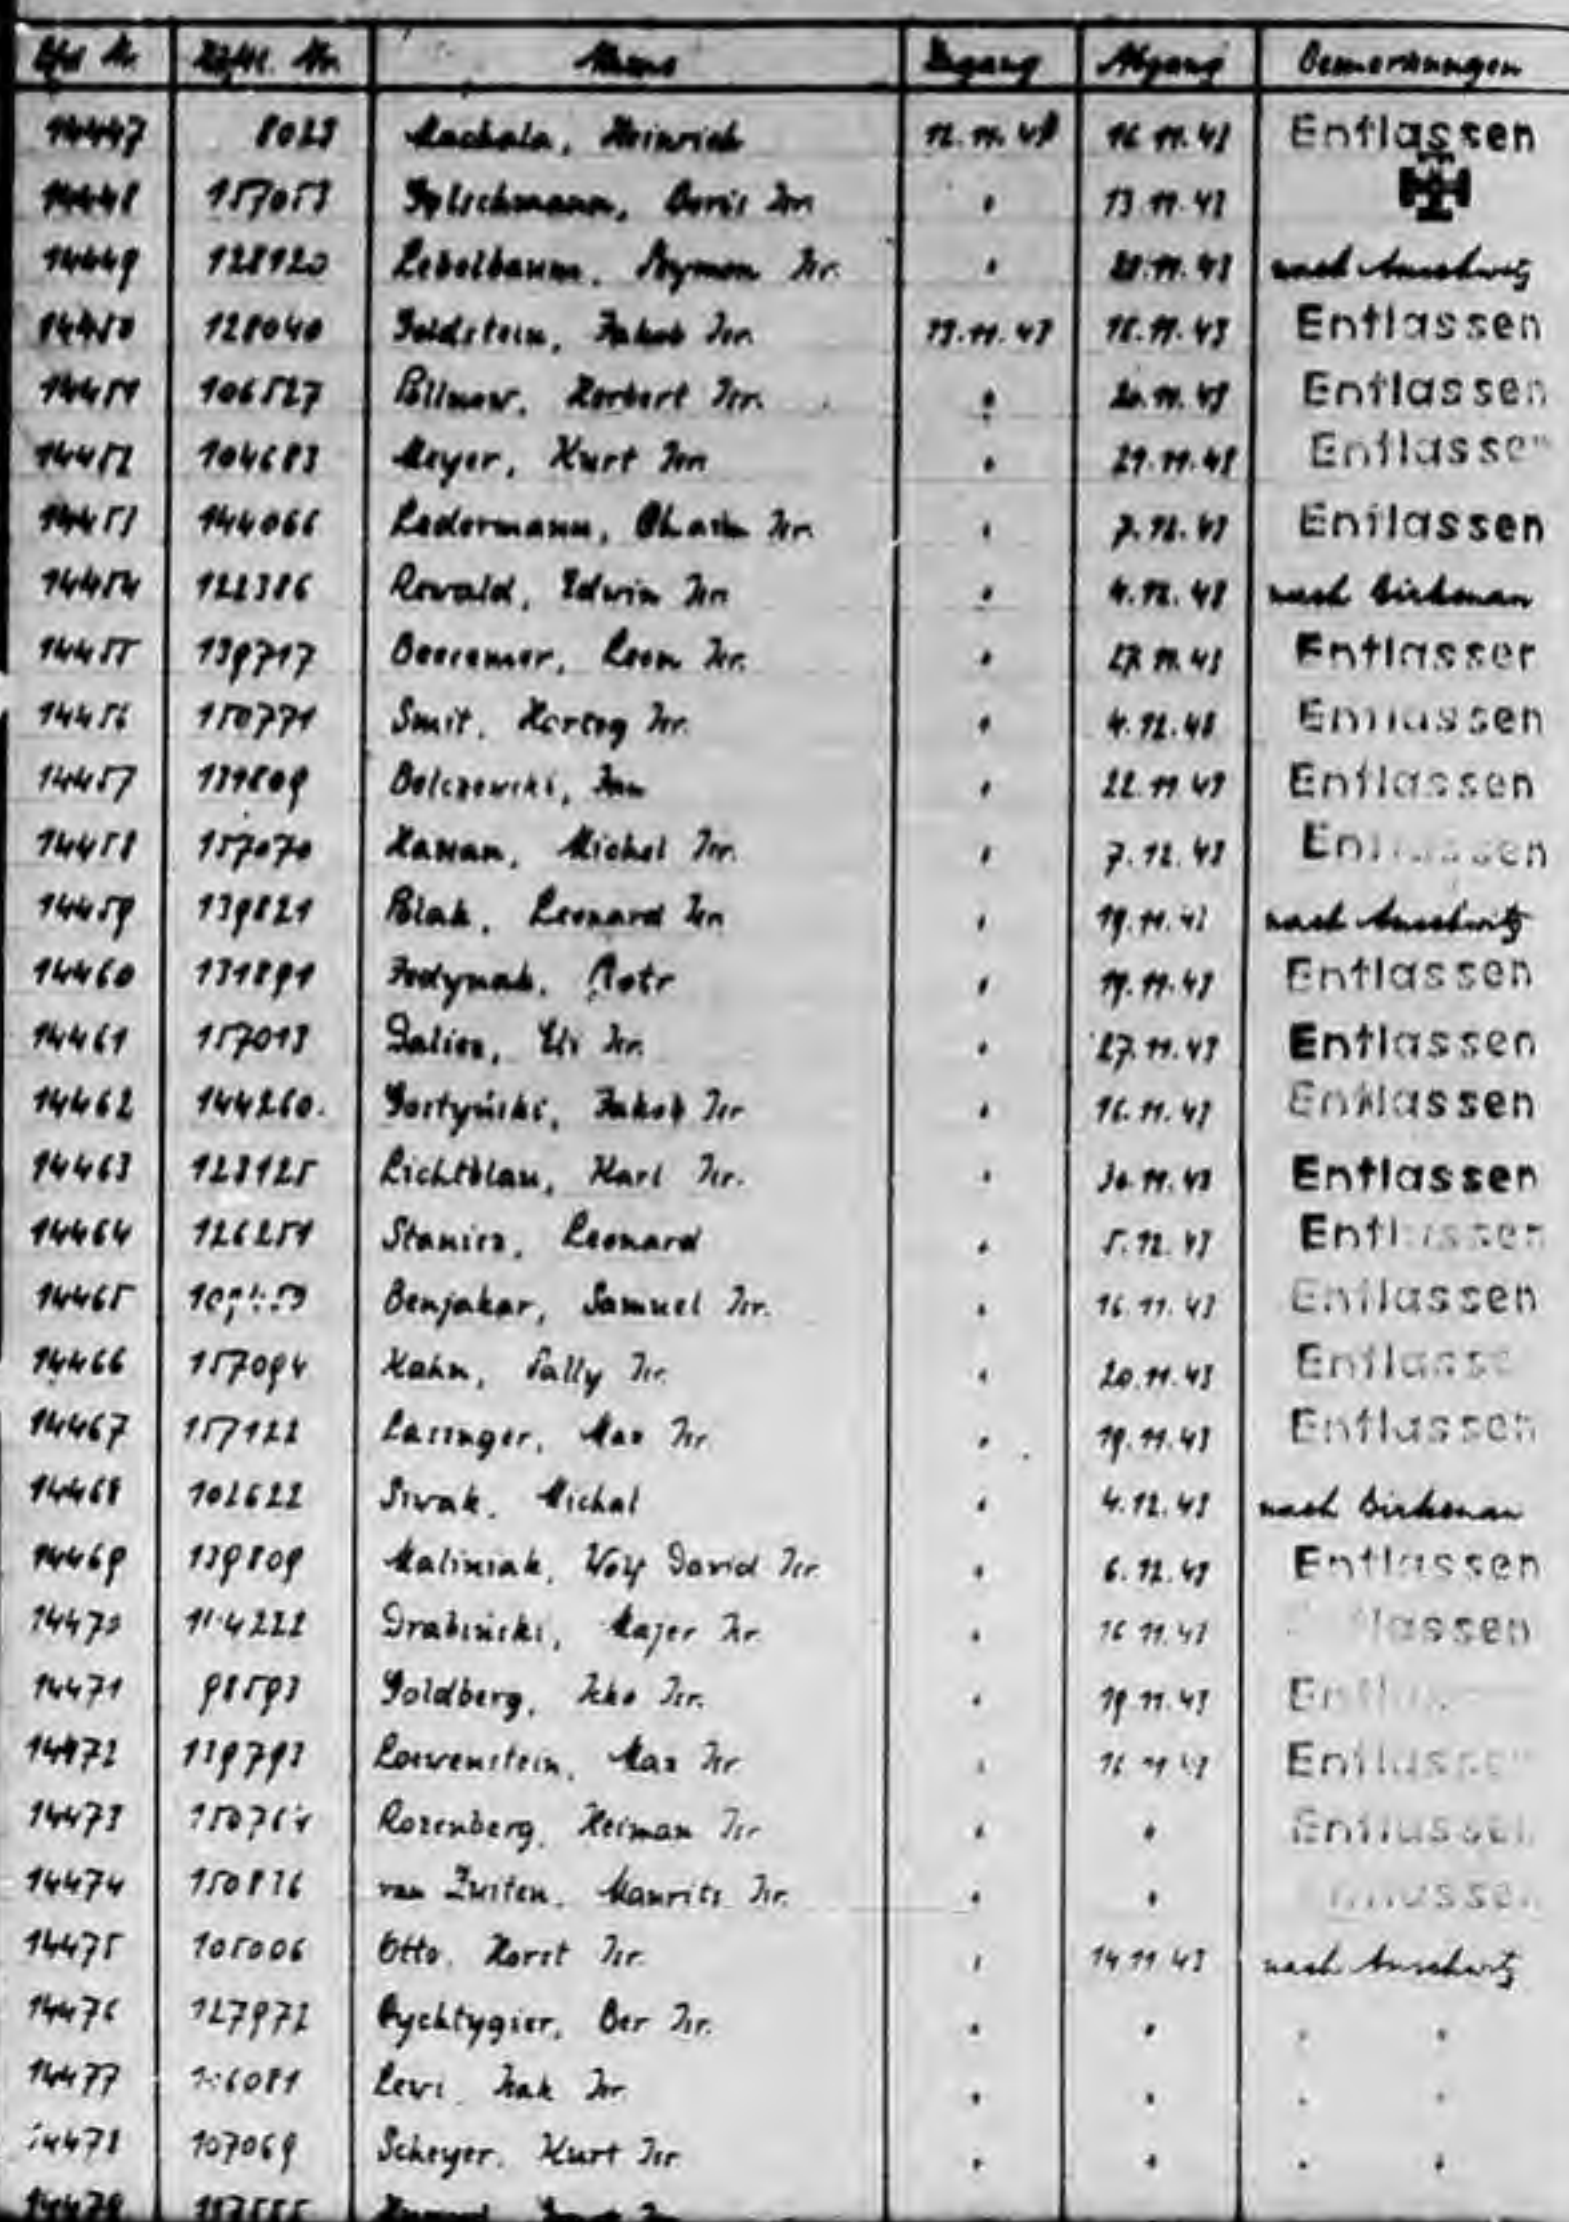 Lfd Nr. Häftl. Nr. Name Zugang Abgang Bemerkungen
14447 8023 Machala, Heinrich 12.11.43 16.11.43 Entlassen
14448 157053 Boris Isr. " 13.11.43
14449 128120 Lebelbaum, Szymon Isr. " 20.11.43 nach Auschwitz
14450 128040 Goldstein, Jakob Isr. 13.11.43 18.11.43 Entlassen
14451 106527 Pollnow, Herbert Isr. " 20.11.43 Entlassen
14452 104683 Meyer, Kurt Isr. " 29.11.43 Entlassen
14453 144066 Ledermann, Chaim Isr. " 7.12.43 Entlassen
14454 122386 Rewald, Edwin Isr. " 4.12.43 nach Birkenau
14455 139717 Leon Isr. " 27.11.43 Entlassen
14456 150771 Smit, Hartog Isr. " 4.12.43 Entlassen
14457 131809 Bolczowski, Jan " 22.11.43 Entlassen
14458 157070 Hassan, Michel Isr. " 7.12.43 Entlassen
14459 139821 Blak, Leonard Isr. " 19.11.43 nach Auschwitz
14460 131891 Fedynak, Piotr " 19.11.43 Entlassen
14461 157013 Dalicz, Eli Isr. " 27.11.43 Entlassen
14462 144260. Gostyński, Jakob Isr. " 16.11.43 Entlassen
14463 123125 Lichtblau, Karl Isr. " 30.11.43 Entlassen
14464 126251 Stanisz, Leonard " 5.12.43 Entlassen
14465 Benjakar, Samuel Isr. " 16.11.43 Entlassen
14466 157094 Hahn, Sally Isr. " 20.11.43 Entlassen
14467 157122 Lasinger, Max Isr. " 19.11.43 Entlassen
14468 102622 Siwak, Michal " 4.12.43 nach Birkenau
14469 139809 Maliniak, Wolf David Isr. " 6.12.43 Entlassen
14470 Drabiński, Majer Isr. " 16.11.43 Entlassen
14471 98593 Goldberg, Icko Isr. " 19.11.43 Entlassen
14472 139793 Loewenstein, Max Isr. " 16.11.43 Entlassen
14473 150764 Rozenberg, Heiman Isr. " " Entlassen
14474 150836 van Zwiten, Maurits Isr. " " Entlassen
14475 105006 Otto, Horst Isr. " 14.11.43 nach Auschwitz
14476 127972 Rychtygier, Ber Isr. " " " "
14477 Lewi, Isak Isr. " " " "
14478 107069 Scheyer, Kurt Isr. " " " "
14479